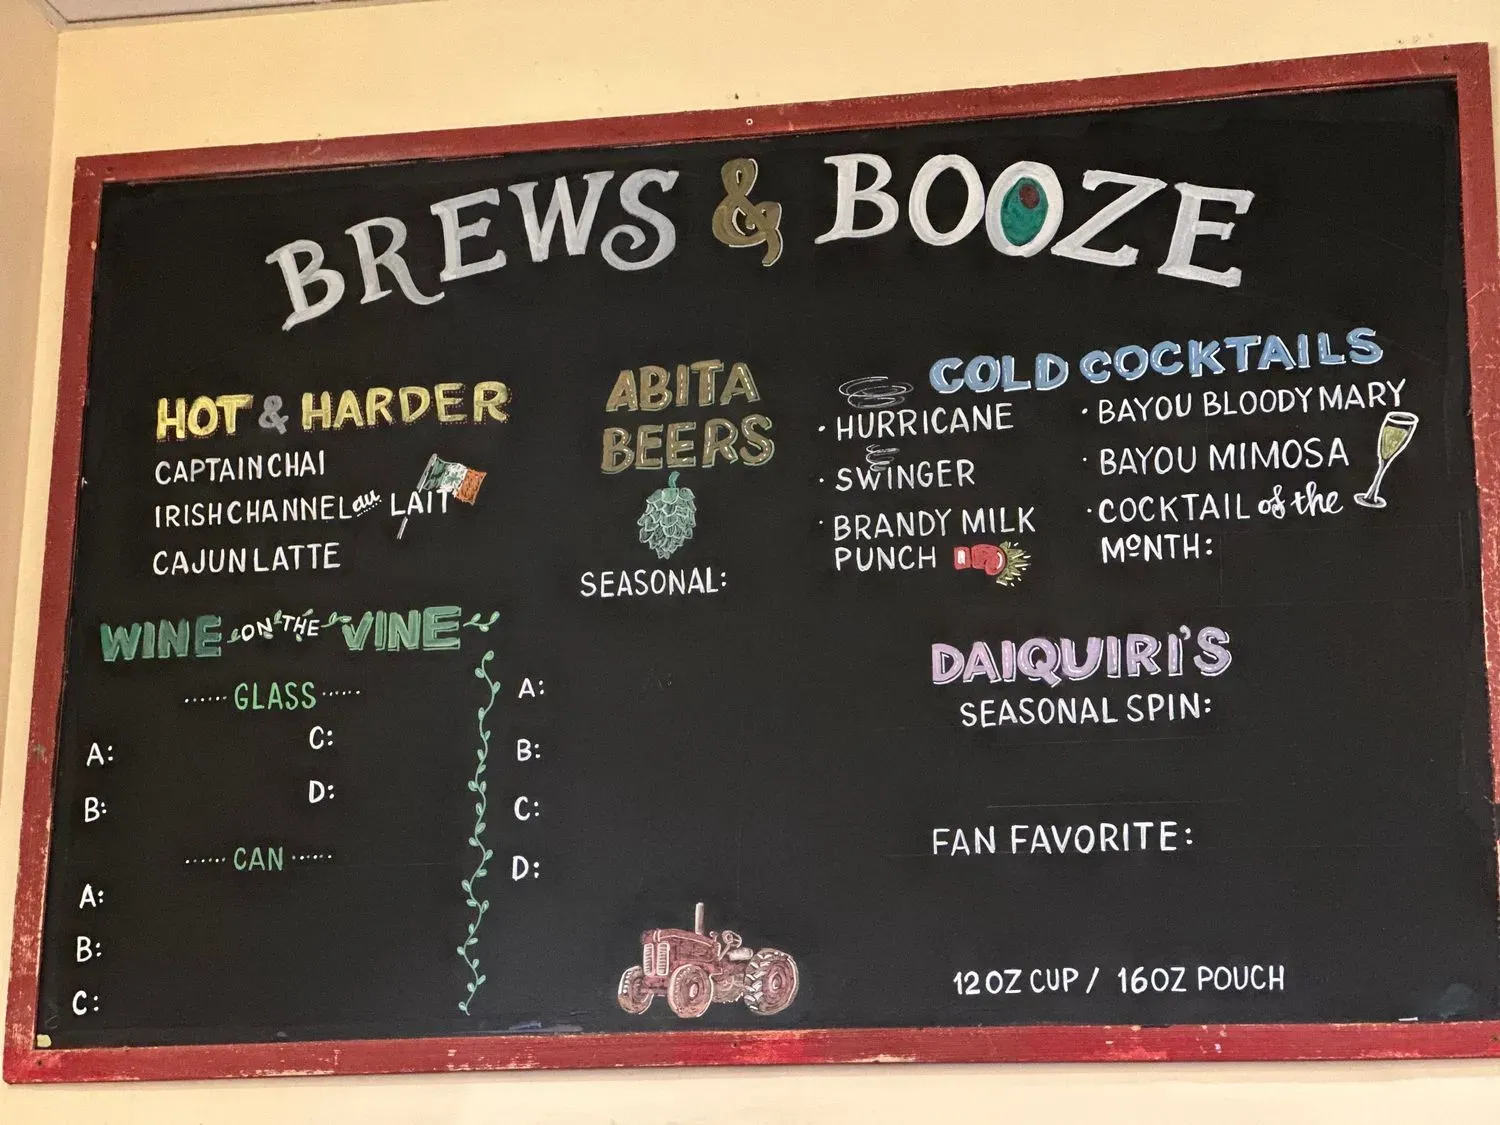 BREWS & BOOZE
HOT & HARDER
CAPTAIN CHAI
IRISH CHANNEL au LAIT
CAJUN LATTE
WINE ON THE VINE
GLASS
A:
C:
B:
D:
CAN
A:
B:
C:
ABITA
BEERS
SEASONAL:
A:
B:
C:
D:
COLD COCKTAILS
· HURRICANE
· SWINGER
· BRANDY MILK
PUNCH
· BAYOU BLOODY MARY
· BAYOU MIMOSA
· COCKTAIL of the
MONTH:
DAIQUIRI'S
SEASONAL SPIN:
FAN FAVORITE:
12 OZ CUP / 16OZ POUCH